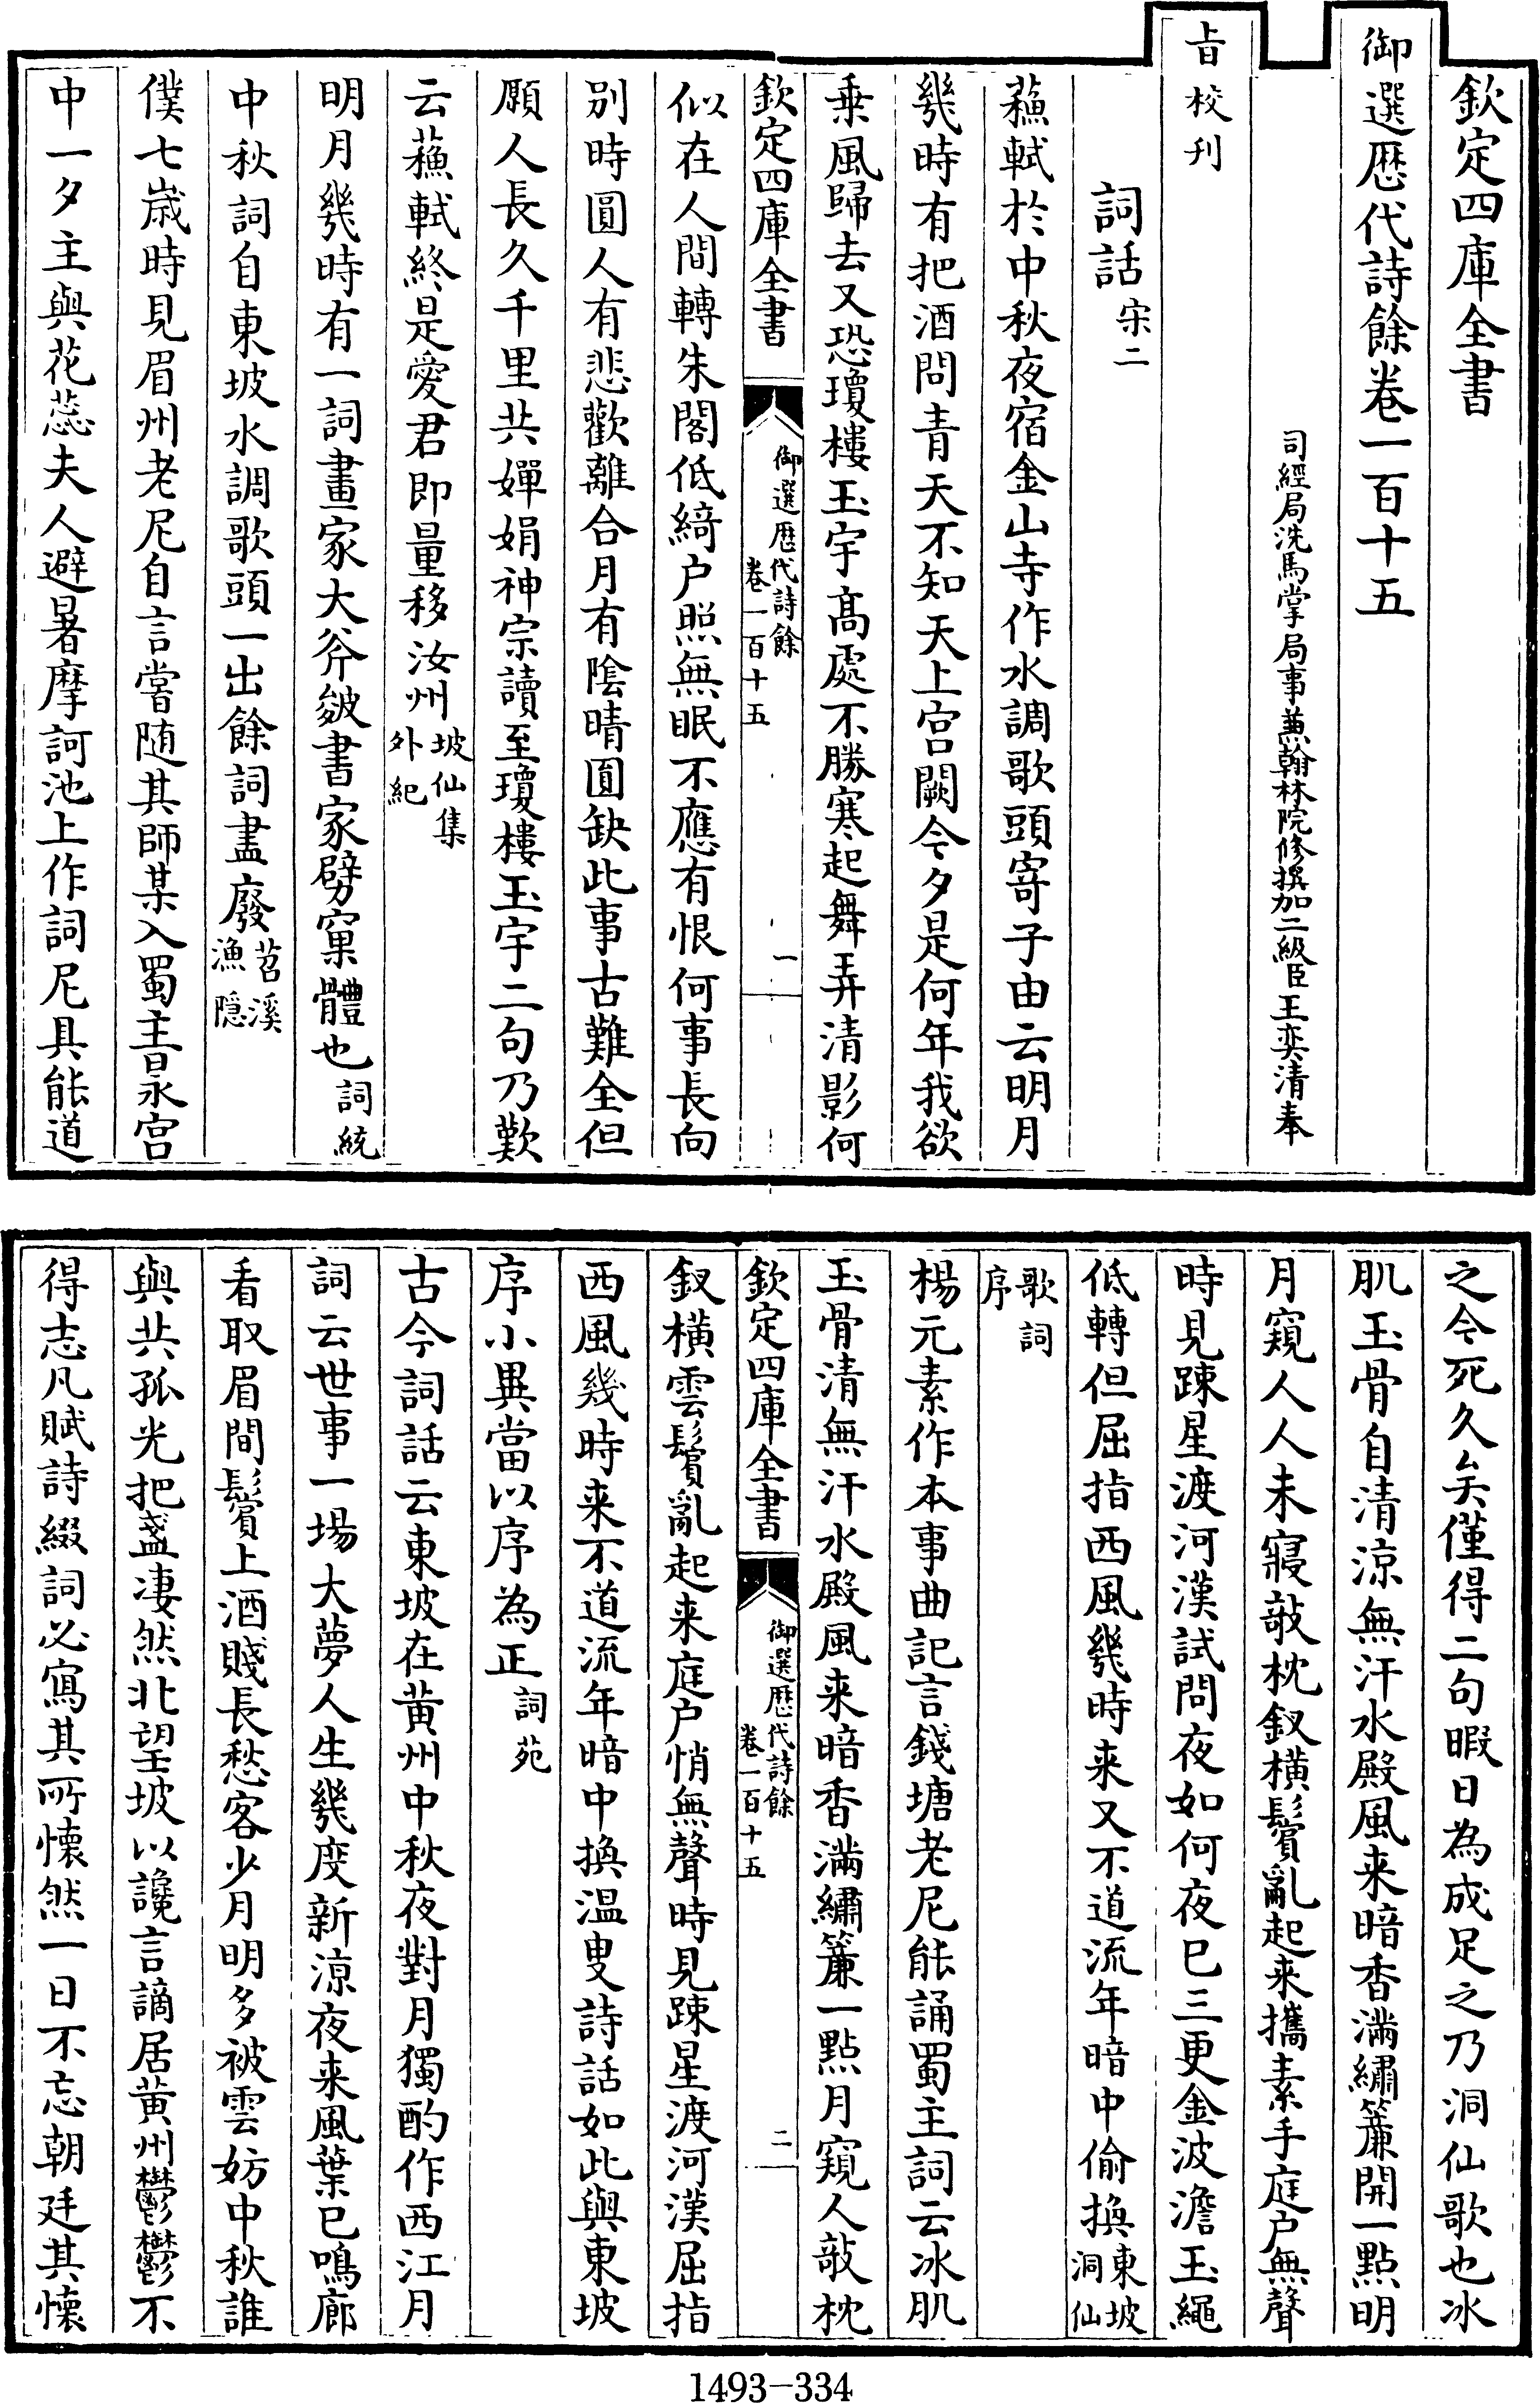 欽定四庫全書
御選歴代詩餘卷一百十五
司經局洗馬掌局事兼翰林院修撰加二級臣王奕清奉
旨校刋
詞話宋二
蘓軾於中秋夜宿金山寺作水調歌頭寄子由云明月
幾時有把酒問青天不知天上宫闕今夕是何年我欲
乗風歸去又恐瓊樓玉宇髙處不勝寒起舞弄清影何
欽定四庫全書
御選歴代詩餘
卷一百十五
一
似在人間轉朱閣低綺户照無眠不應有恨何事長向
别時圓人有悲歡離合月有陰晴圓缺此事古難全但
願人長久千里共嬋娟神宗讀至瓊樓玉宇二句乃歎
云蘓軾終是愛君即量移汝州坡仙集外紀
明月幾時有一詞畫家大斧皴書家劈窠體也詞統
中秋詞自東坡水調歌頭一出餘詞盡廢苕溪漁隠
僕七歳時見眉州老尼自言嘗随其師某入蜀主昶宫
中一夕主與花蕊夫人避暑摩訶池上作詞尼具能道
之今死久矣僅得二句暇日為成足之乃洞仙歌也冰
肌玉骨自清涼無汗水殿風来暗香滿繡簾開一點明
月窺人人未寢敧枕釵横鬢亂起来攜素手庭户無聲
時見踈星渡河漢試問夜如何夜已三更金波澹玉繩
低轉但屈指西風幾時来又不道流年暗中偷換東坡洞仙
歌詞序
楊元素作本事曲記言錢塘老尼能誦蜀主詞云冰肌
玉骨清無汗水殿風来暗香滿繡簾一點月窺人敧枕
欽定四庫全書
御選歴代詩餘
卷一百十五
二
釵横雲鬢亂起来庭户悄無聲時見踈星渡河漢屈指
西風幾時来不道流年暗中換温叟詩話如此與東坡
序小異當以序為正詞苑
古今詞話云東坡在黄州中秋夜對月獨酌作西江月
詞云世事一場大夢人生幾度新涼夜来風葉已鳴廊
看取眉間鬢上酒賤長愁客少月明多被雲妨中秋誰
與共孤光把盞凄然北望坡以讒言謫居黄州鬱鬱不
得志凡賦詩綴詞必寫其所懐然一日不忘朝廷其懐
1493-334